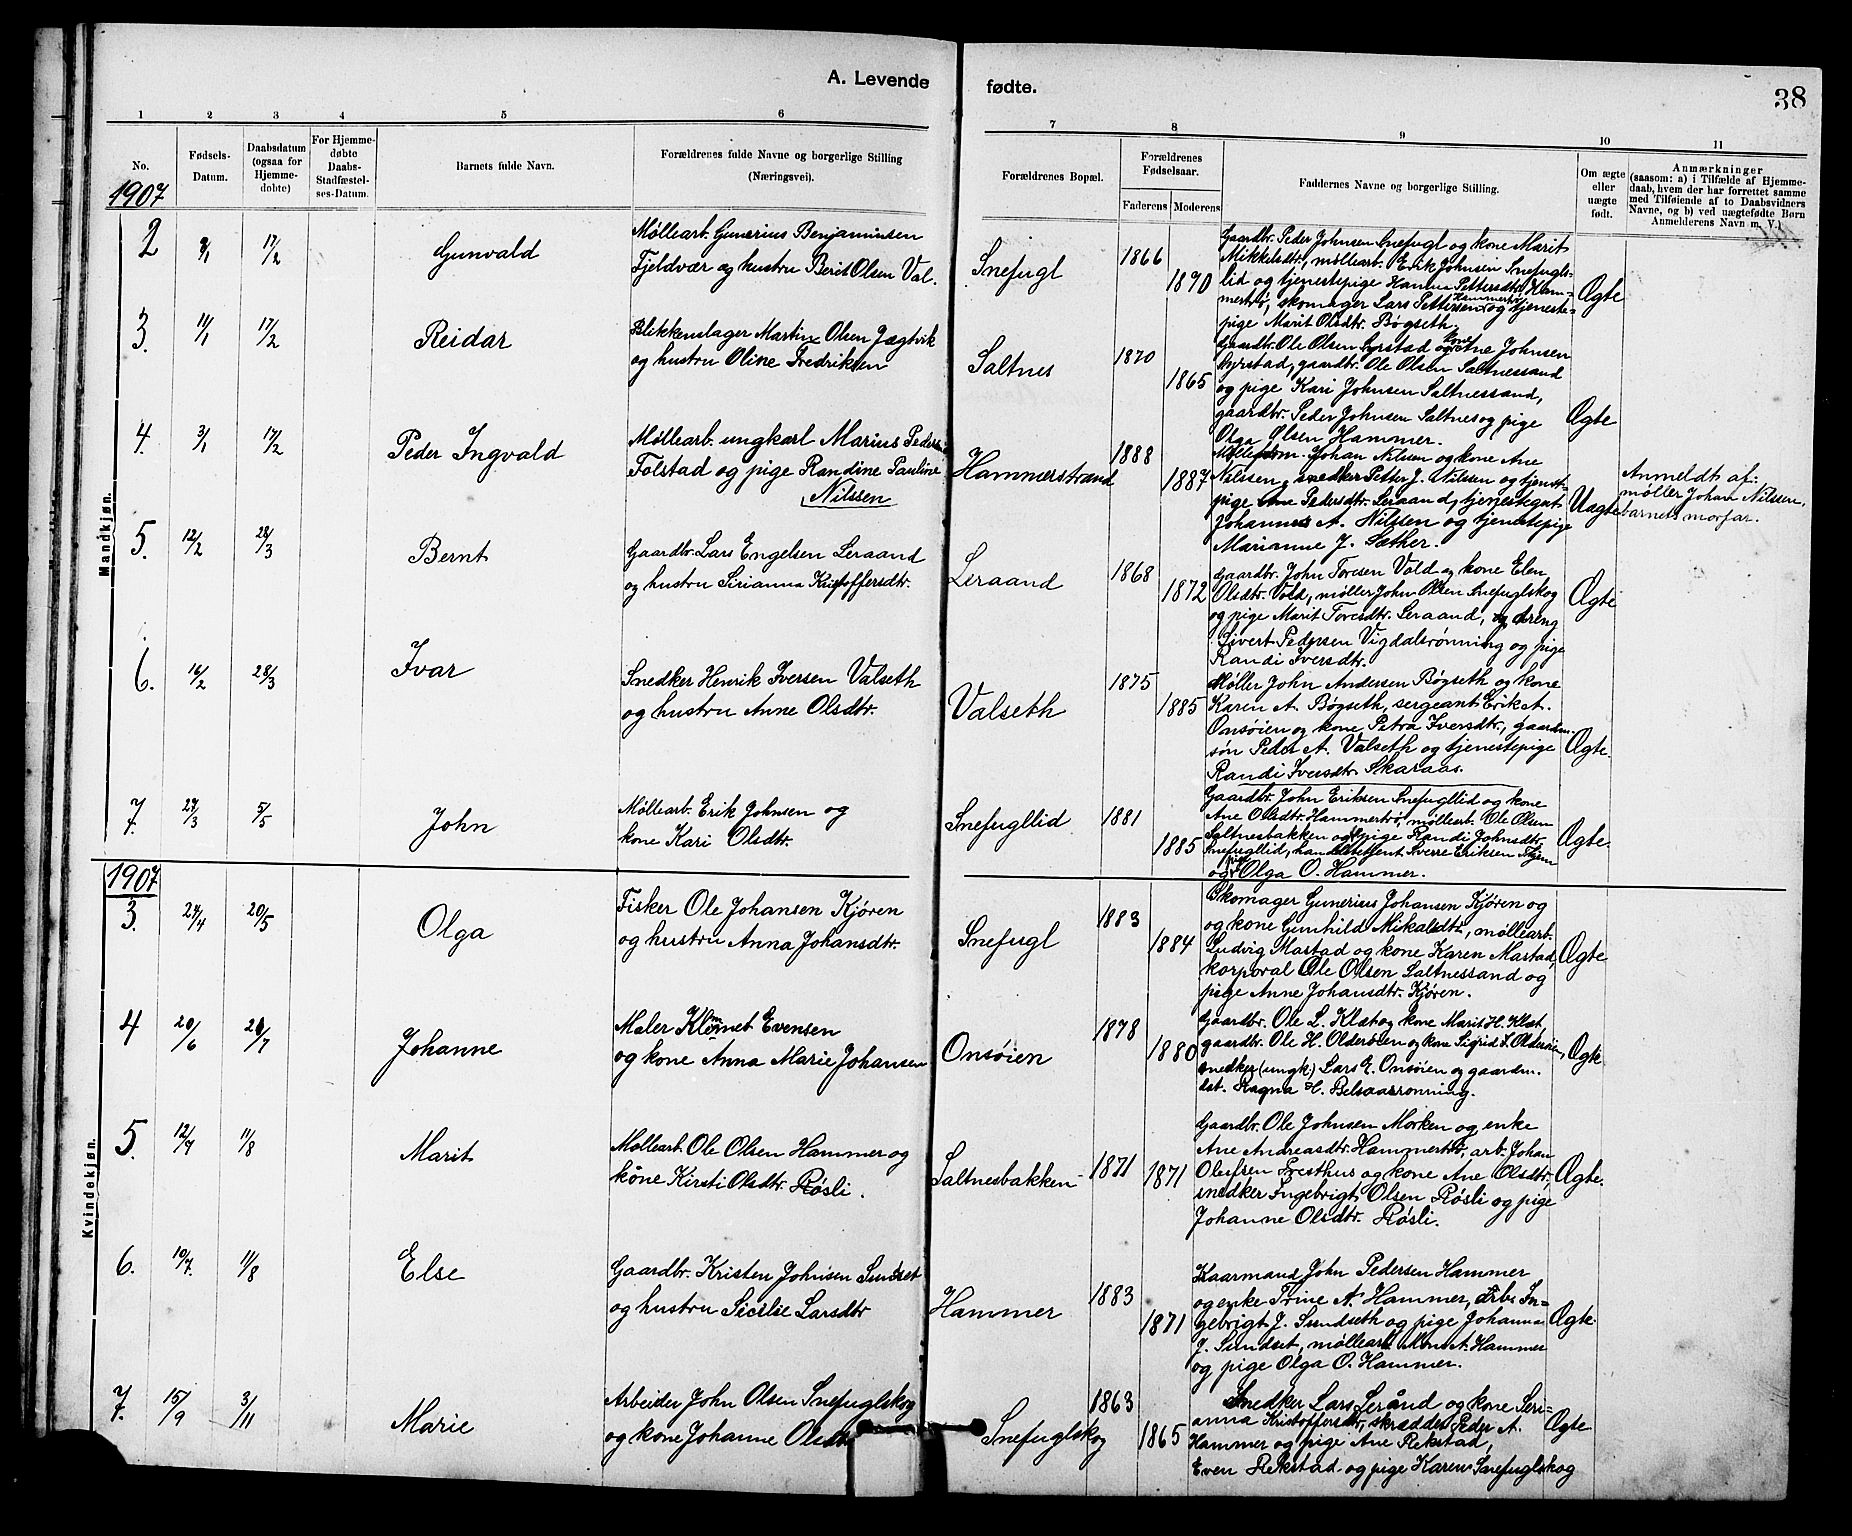 A. Levende fødte.
38
1 2 3 4 5 6 7 8 9 10 11
No.
Fødsels-
Datum.
Daabsdatum
(ogsaa for
Hjemme-
døbte)
For Hjemme-
døbte
Daabs-
Stadfæstel-
ses-Datum.
Barnets fulde Navn.
Forældrenes fulde Navne og borgerlige Stilling
(Næringsvei).
Forældrenes Bopæl.
Forældrenes
Fødselsaar.
Faderens Moderens
Faddernes Navne og borgerlige Stilling.
Om ægte
eller
uægte
født.
Anmærkninger
(saasom: a) i Tilfælde af Hjemme-
daab, hvem der har forrettet samme
med Tilføiende af to Daabsvidners
Navne, og b) ved uægtefødte Børn
Anmelderens Navn m. V.)
1907
Mandkjøn.
2 9/1 17/2 Gunvald
Møllearb. Gunerius Benjaminsen
Fjeldvær og hustru Berit Olsen Val.
Snefugl 1866 1870
Gaardbr. Peder Johnsen Snefugl og kone Marit
Mikkelsdtr., møllearb. Erik Johnsen Snefugls-
lid og tjenestepige Hanna Pettersdtr. Ham-
mertrø, skomager Lars Pettersen Hammertrø og tjeneste-
pige Marit Olsdtr. Bøgseth.
Ægte
3. 11/1 17/2 Reidar
Blikkenslager Martin Olsen Jægtvik
og hustru Oline Fredriksen
Saltnes 1870 1865
Gaardbr. Ole Olsen Gyrstad og kone Ane Johnsen
Gyrstad, gaardbr. Ole Olsen Saltnessand
og pige Kari Johnsen Saltnessand,
gaardbr. Peder Johnsen Saltnes og pige
Olga Olsen Hammer.
Ægte
4. 3/1 17/2 Peder Ingvald
Møllearb. ungkarl Marius Peders
Folstad og pige Randine Pauline
Nilssen
Hammerstrand 1888 1887
Johan Nilsen og kone Ane
Nilsen, snedker Petter J. Nilssen og tjenst-
pige Ane Pedersdtr. Leraand, tjenestegut
Johannes A. Nilssen og tjenestepige
Marianne J. Sæther.
Uægte
Anmeldt af:
møller Johan Nilssen,
barnets morfar.
5. 12/2 28/3 Bernt
Gaardbr. Lars Engelsen Leraand
og hustru Sirianna Kristoffersdtr.
Leraand 1868 1872
Gaardbr. John Toresen Vold og kone Elen
Olsdtr. Vold, møller John Olsen Snefuglskog
og pige Marit Toresdtr. Leraand, og dreng
Sivert Pedersen Vigdalsrønning og pige
Randi Iversdtr.
Ægte
6. 16/2 28/3 Ivar
Snedker Henrik Iversen Valseth
og hustru Anne Olsdtr.
Valseth 1875 1885
Møller John Andersen Bøgseth og kone
Karen A. Bøgseth, sergeant Erik A.
Onsøien og kone Petra Iversdtr., gaardm.
søn Peder A. Valseth og tjenestepige
Randi Iversdtr. Skaraas.
Ægte.
7. 27/3 5/5 John
Møllearb. Erik Johnsen og
kone Kari Olsdtr.
Snefugllid 1881 1885
Gaardbr. John Eriksen Snefugllid og kone
Ane Olsdtr. Hammertrø, møllearb. Ole Olsen
Saltnesbakken og pige Randi Johnsdtr.
Snefugllid, handelsbetjent Sverre Eriksen
og pige Olga O. Hammer.
Ægte.
1907
Kvindekjøn.
3. 27/4 20/5 Olga
Fisker Ole Johansen Kjøren
og hustru Anna Johansdtr.
Snefugl 1883 1884
Skomager Gunerius Johansen Kjøren og
og kone Gunhild Mikalsdtr., møllearb.
Ludvig Mastad og kone Karen Mastad,
korporal Ole Olsen Saltnessand og
pige Anne Johansdtr. Kjøren.
Ægte
4 20/6 20/7 Johanne
Maler Klomet Evensen
og kone Anna Marie Johansen
Onsøien 1878 1880
Gaardbr. Ole L. Klæt og kone Marit H. Klæt,
gaardbr. Ole H. Olderøien og kone Sigrid I. Olderøien,
snedker (ungk.) Lars E. Onsøien og gaardm.
dat. Ragna H. Belsaasrønning.
Ægte
5. 12/7 11/8 Marit
Møllearb. Ole Olsen Hammer og
kone Kirsti Olsdtr. Røsli.
Saltnesbakken 1871 1871
Gaardbr. Ole Johnsen Morken og enke
Ane Andreasdtr. Hammertrø, arb. Johan
Olufsen Presthus og kone Ane Olsdtr.,
snedker Ingebrigt Olsen Røsli og pige
Johanne Olsdtr. Røsli.
Ægte.
6. 10/7. 11/8 Else
Gaardbr. Kristen Johnsen Sundset
og hustru Sicilie Larsdtr
Hammer 1883 1871
Kaarmand John Pedersen Hammer
og enke Trine A. Hammer, arb. In-
gebrigt J. Sundseth og pige Johanna
J. Sundset, møllearb. A. Hammer
og pige Olga O. Hammer.
Ægte.
7. 15/9 3/11 Marie
Arbeider John Olsen Snefuglskog
og kone Johanne Olsdtr
Snefuglskog 1863 1865
Snedker Lars Lerånd og kone Seri-
anna Kristoffersdtr, skrædder Peder A.
Hammer og pige Ane Rekstad,
Even Rekstad og pige Karen Snefuglskog
Ægte